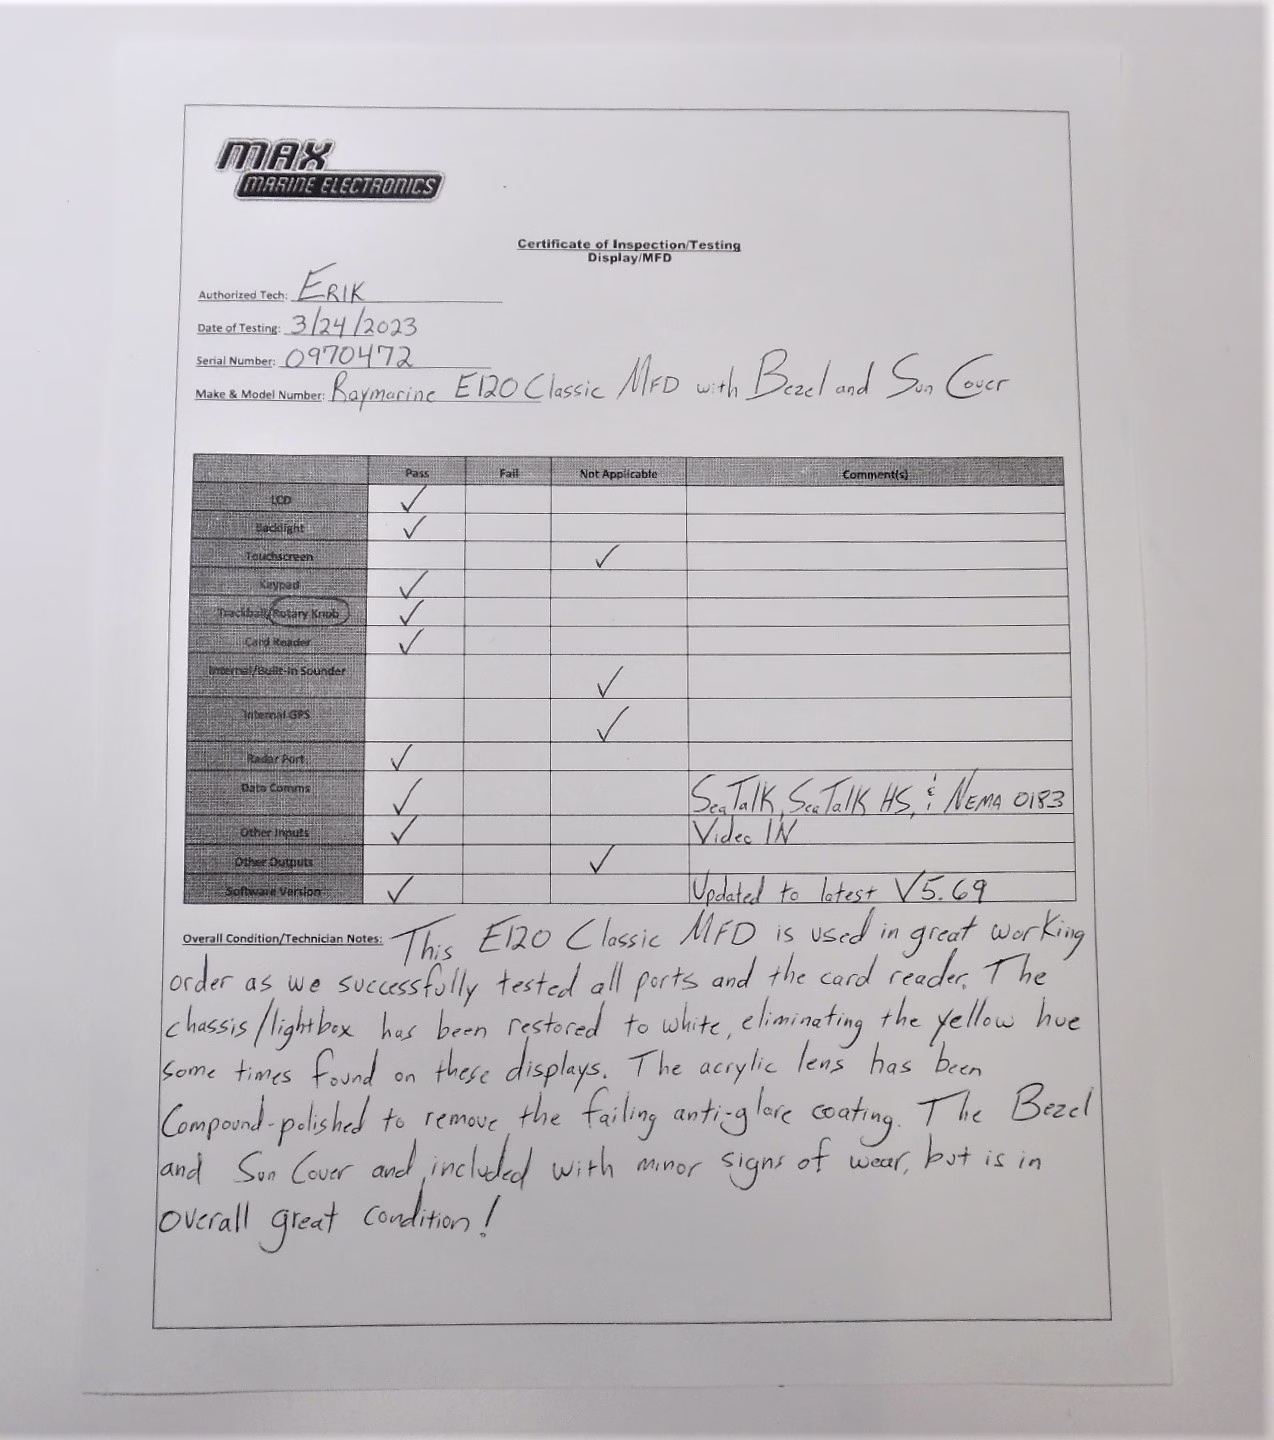 MAX
MARINE ELECTRONICS
Certificate of Inspection/Testing
Display/MFD
Authorized Tech: ERIK
Date of Testing: 3/24/2023
Serial Number: 0970472
Make & Model Number: Raymarine E120 Classic MFD with Bezel and Sun Cover
Pass Fail Not Applicable Comment(s)
LCD ✓
Backlight ✓
Touchscreen ✓
Keypad ✓
Trackball/Rotary Knob ✓
Card Reader ✓
Internal/Built-in Sounder ✓
Internal GPS ✓
Radar Port ✓
Data Comms ✓ SeaTalk, SeaTalk HS, & NEMA 0183
Other Inputs ✓ Video IN
Other Outputs ✓
Software Version ✓ Updated to latest V5.69
Overall Condition/Technician Notes: This E120 Classic MFD is used in great working
order as we successfully tested all ports and the card reader. The
chassis/lightbox has been restored to white, eliminating the yellow hue
some times found on these displays. The acrylic lens has been
Compound-polished to remove the failing anti-glare coating. The Bezel
and Sun Cover and included with minor signs of wear, but is in
overall great condition!